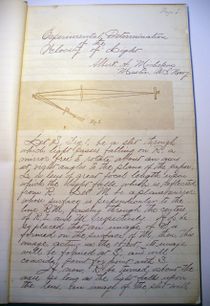 Page 1
Experimental Determination
of the
Velocity of Light
Albert A. Michelson,
Master U.S. Navy.
Fig. 1.
Let S, Fig. 1, be a slit, through
which light passes, falling on R, a
mirror free to rotate about an axis
at right angles to the plane of the paper.
L is a lens of great focal length, upon
which the light falls which is reflected
from R. Let M be a plane mirror
whose surface is perpendicular to the
line R, M, passing through the centers
of R, L, and M, respectively. If L be
so placed that an image of S is
formed on the surface of M, then, this
image acting as the object, its image
will be formed at S, and will
coincide, point for point, with S.
If, now, R be turned about the
axis, so long as the light falls upon
the lens, an image of the slit will